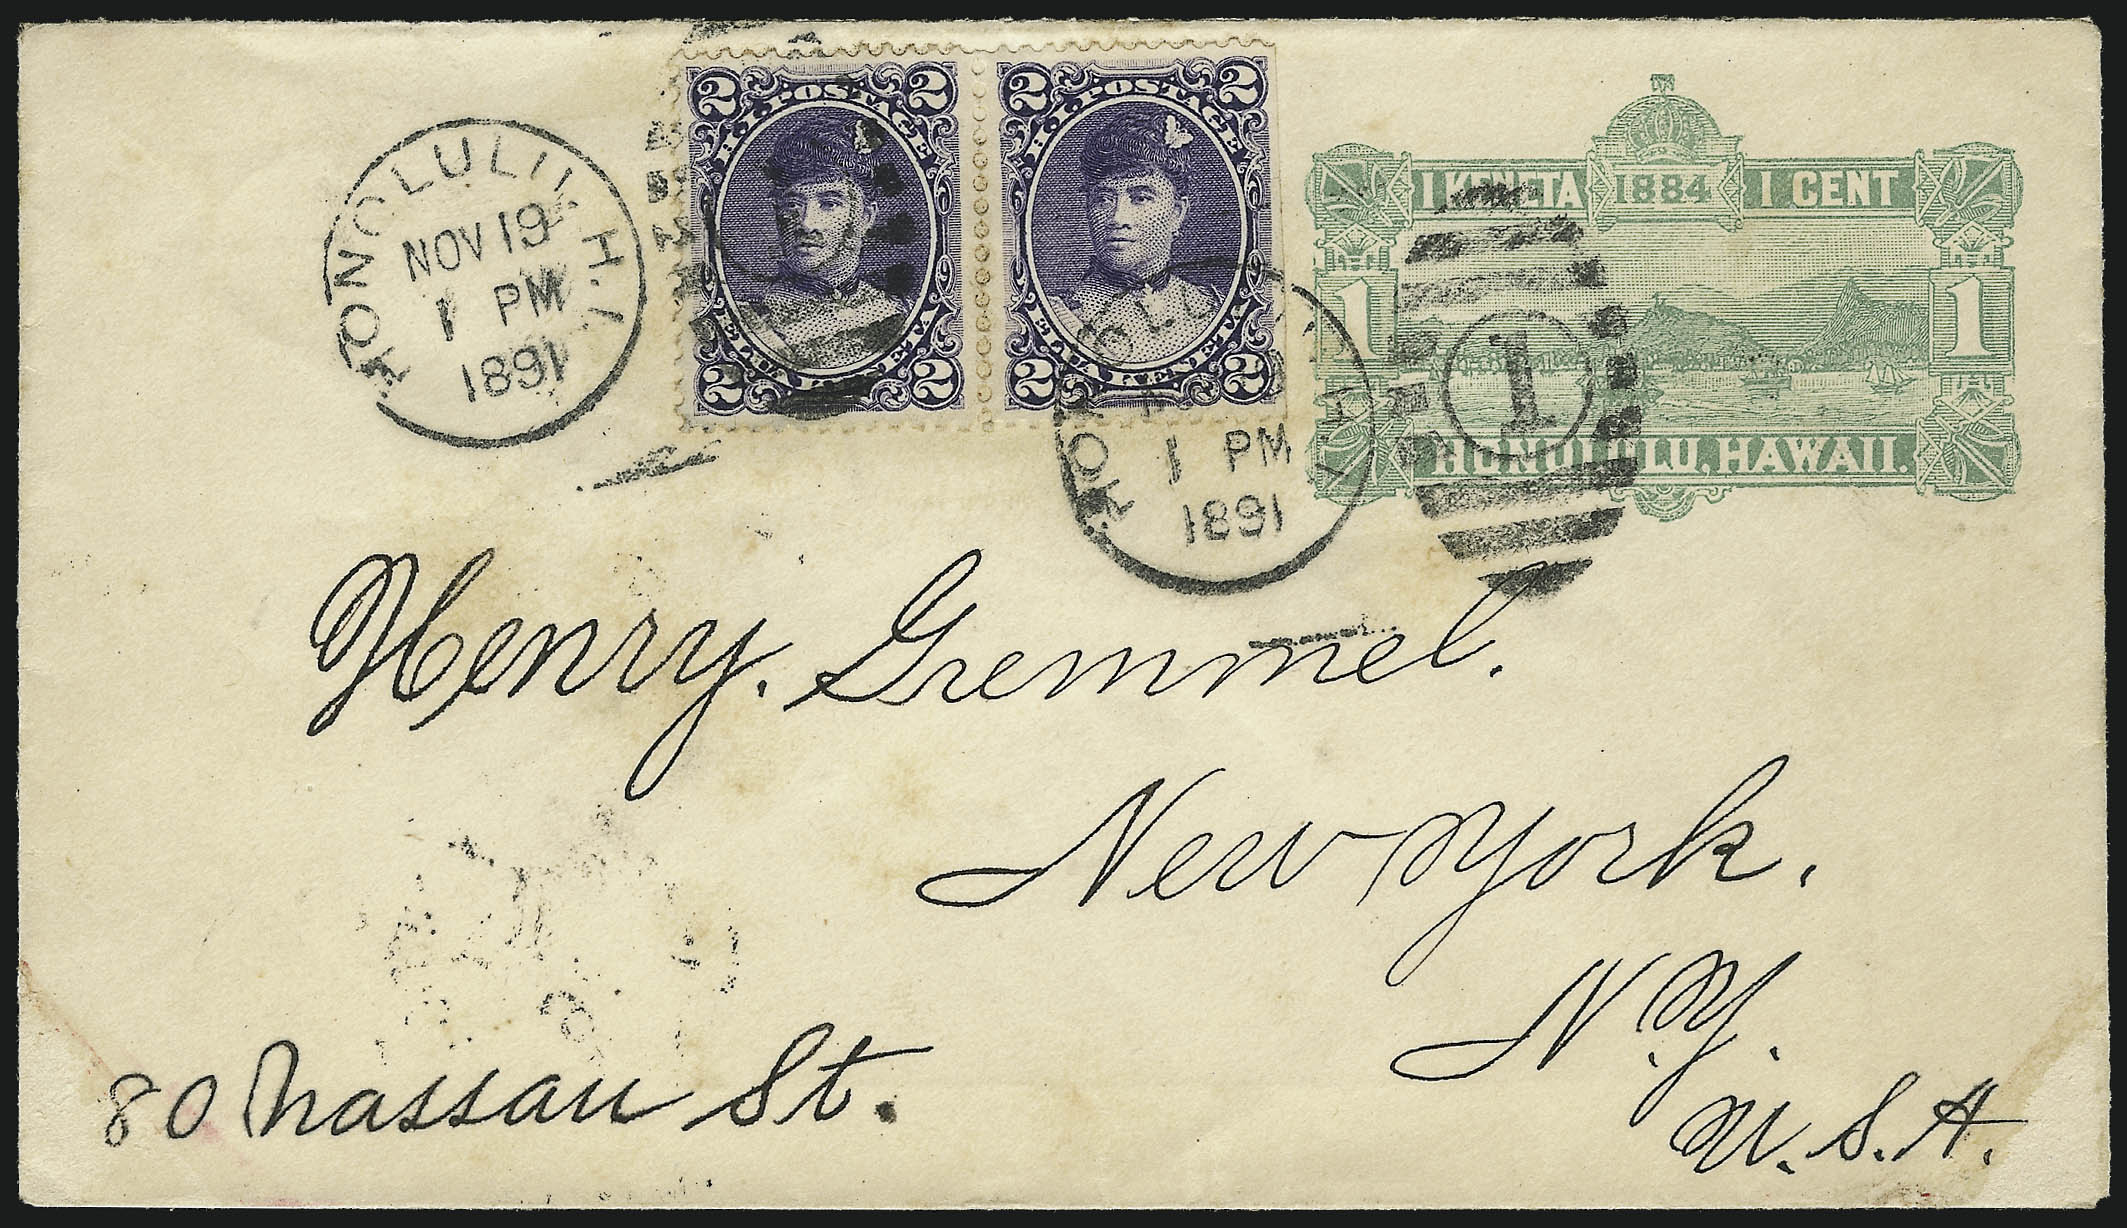 HONOLULU H.I.
NOV 19
1 PM
1891
2 2
H.I. POSTAGE
ELUA KENETA
2 2
2 2
H.I. POSTAGE
ELUA KENETA
2 2
1 KENETA 1884 1 CENT
1 1
HONOLULU, HAWAII.
1
1 PM
1891
Henry. Gremmel.
New York.
N.Y.
80 Nassau St.
U.S.A.